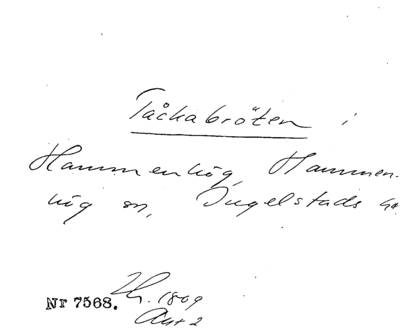 Tåckabröten i
Hammenhög, Hammen-
hög sn, Ingelstads hd
Nr 7568. Zh. 1809
Akt 2